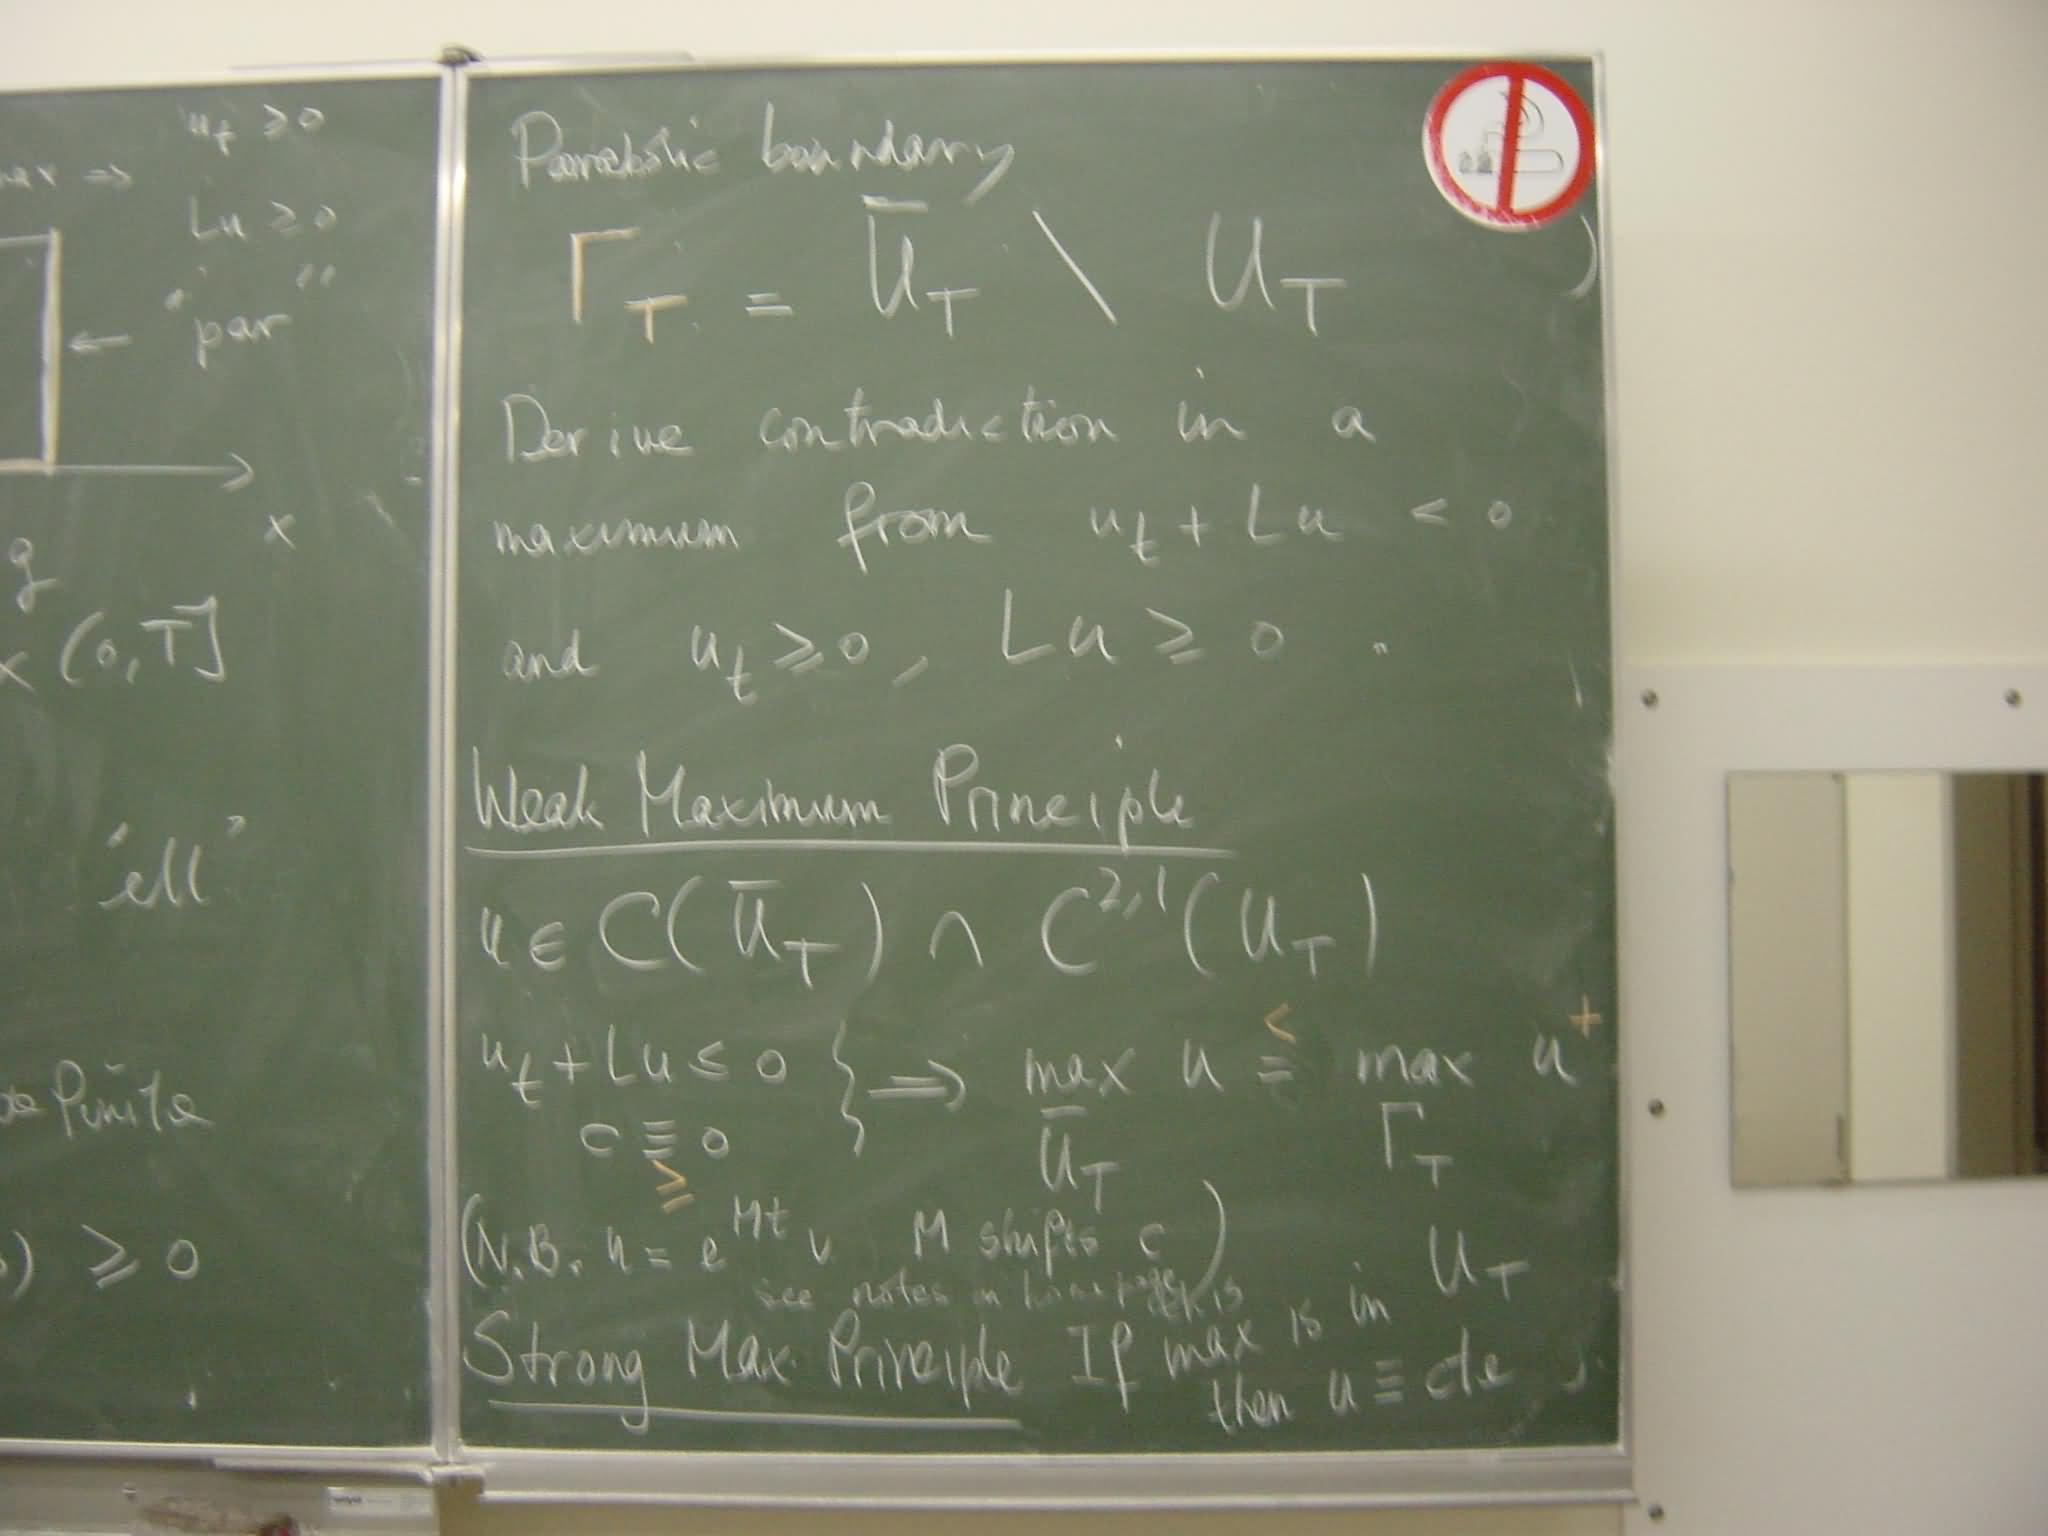 u_t ≥ 0
⇒
Lu ≥ 0
"par"
←
x
g
x (0,T]
'ell'
) ≥ 0
Parabolic boundary
Γ_T = Ū_T \ U_T
Derive contradiction in a
maximum from u_t + Lu < 0
and u_t ≥ 0, Lu ≥ 0.
Weak Maximum Principle
u ∈ C(Ū_T) ∩ C^{2,1}(U_T)
u_t + Lu ≤ 0 } ⇒ max u = max u^+
≤
c ≡ 0 Ū_T Γ_T
≥
(N.B. u = e^{Mt} v M shifts c)
see notes on homepage
Strong Max Principle If max is in U_T
then u ≡ cte